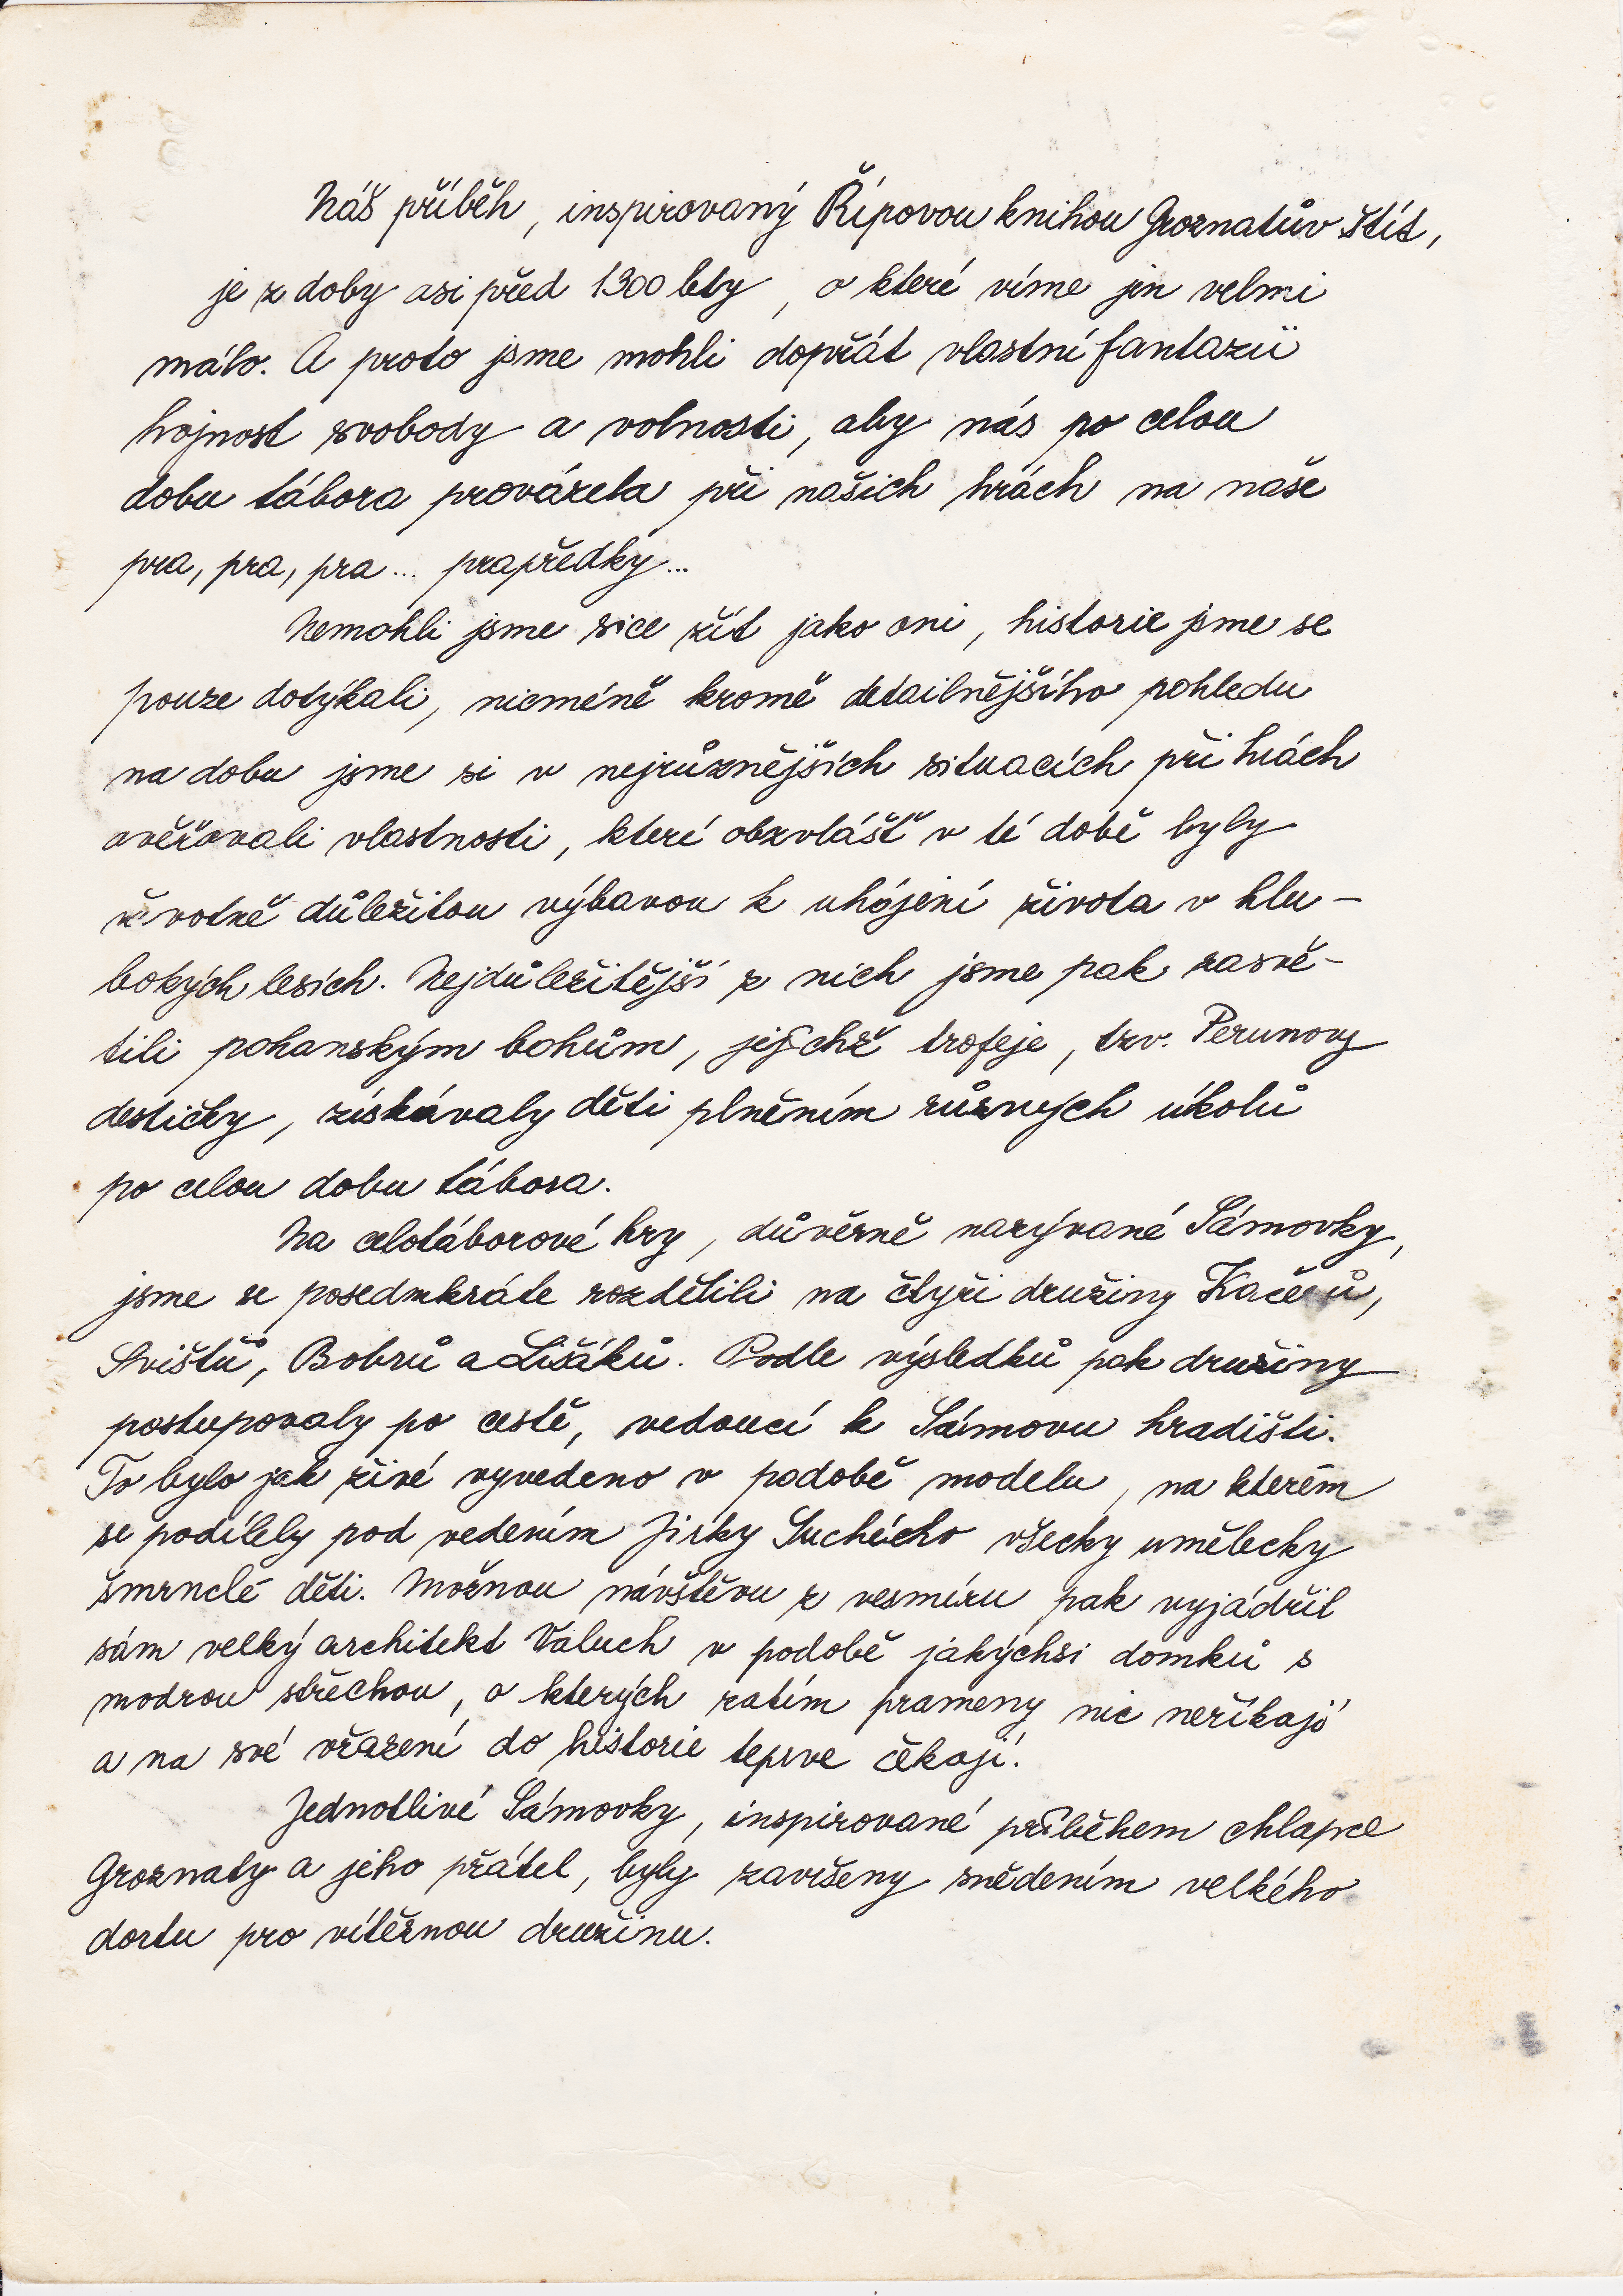 Náš příběh, inspirovaný Řípovou knihou Groznatův štít,
je z doby asi před 1300 lety, o které víme jen velmi
málo. A proto jsme mohli dopřát vlastní fantazii
hojnost svobody a volnosti, aby nás po celou
dobu tábora provázela při našich hrách na naše
pra, pra, pra... prapředky...
Nemohli jsme sice žít jako oni, historie jsme se
pouze dotýkali, nicméně kromě detailnějšího pohledu
na dobu jsme si v nejrůznějších situacích při hrách
ověřovali vlastnosti, které obzvlášť v té době byly
životně důležitou výbavou k uhájení života v hlu-
bokých lesích. Nejdůležitější z nich jsme pak zasvě-
tili pohanským bohům, jejichž trofeje, tzv. Perunovy
destičky, získávaly děti plněním různých úkolů
po celou dobu tábora.
Na celotáborové hry, důvěrně nazývané Sámovky,
jsme se posedmkráte rozdělili na čtyři družiny Kačerů,
Svišťů, Bobrů a Lišáků. Podle výsledků pak družiny
postupovaly po cestě, vedoucí k Sámovu hradišti.
To bylo jak živé vyvedeno v podobě modelu, na kterém
se podílely pod vedením Jirky Suchého všecky umělecky
šmrnclé děti. Možnou návštěvu z vesmíru pak vyjádřil
sám velký architekt Valuch v podobě jakýchsi domků s
modrou střechou, o kterých zatím prameny nic neříkají
a na své vřazení do historie teprve čekají.
Jednotlivé Sámovky, inspirované příběhem chlapce
Groznaty a jeho přátel, byly završeny snědením velkého
dortu pro vítěznou družinu.